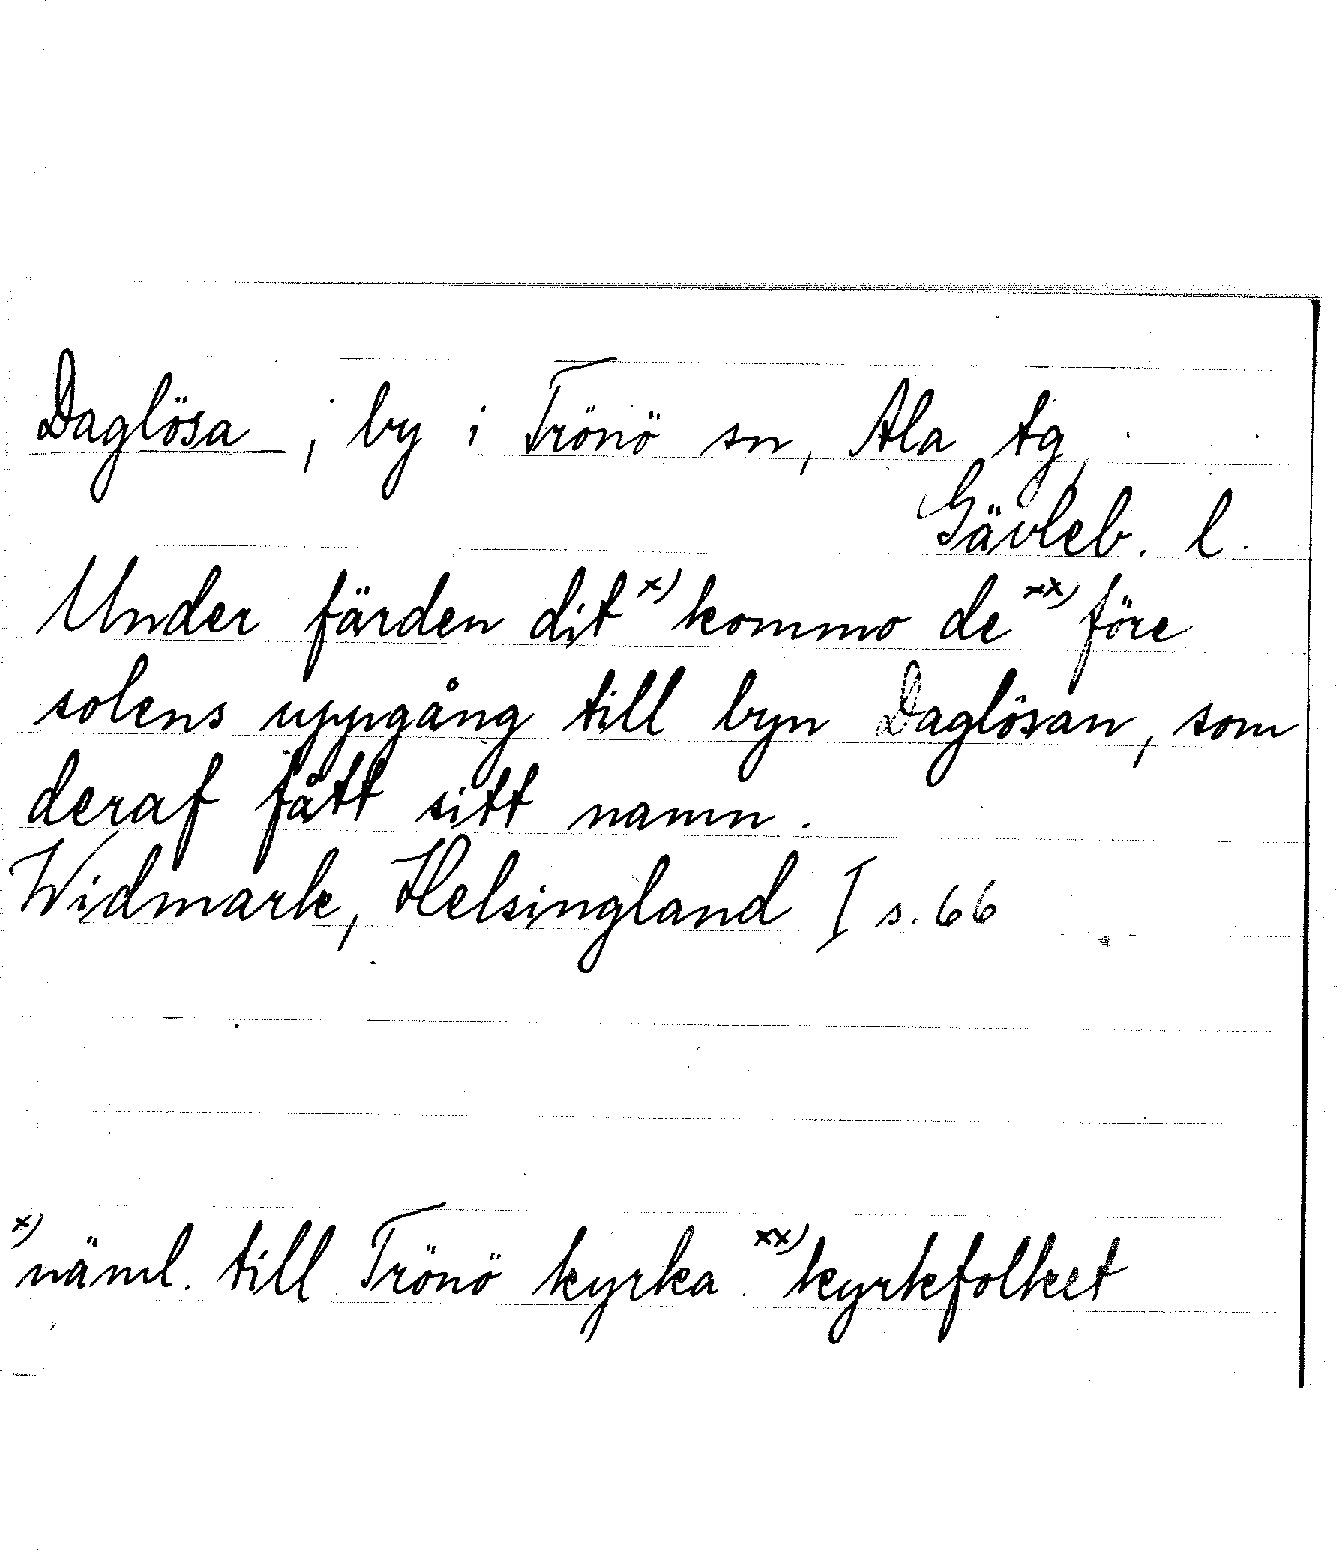 Daglösa, by i Trönö sn, Ala tg,
Gävleb. l.
Under färden dit x) kommo de xx) före
solens uppgång till byn Daglösan, som
deraf fått sitt namn.
Widmark, Helsingland I s. 66
x) näml. till Trönö kyrka xx) kyrkfolket